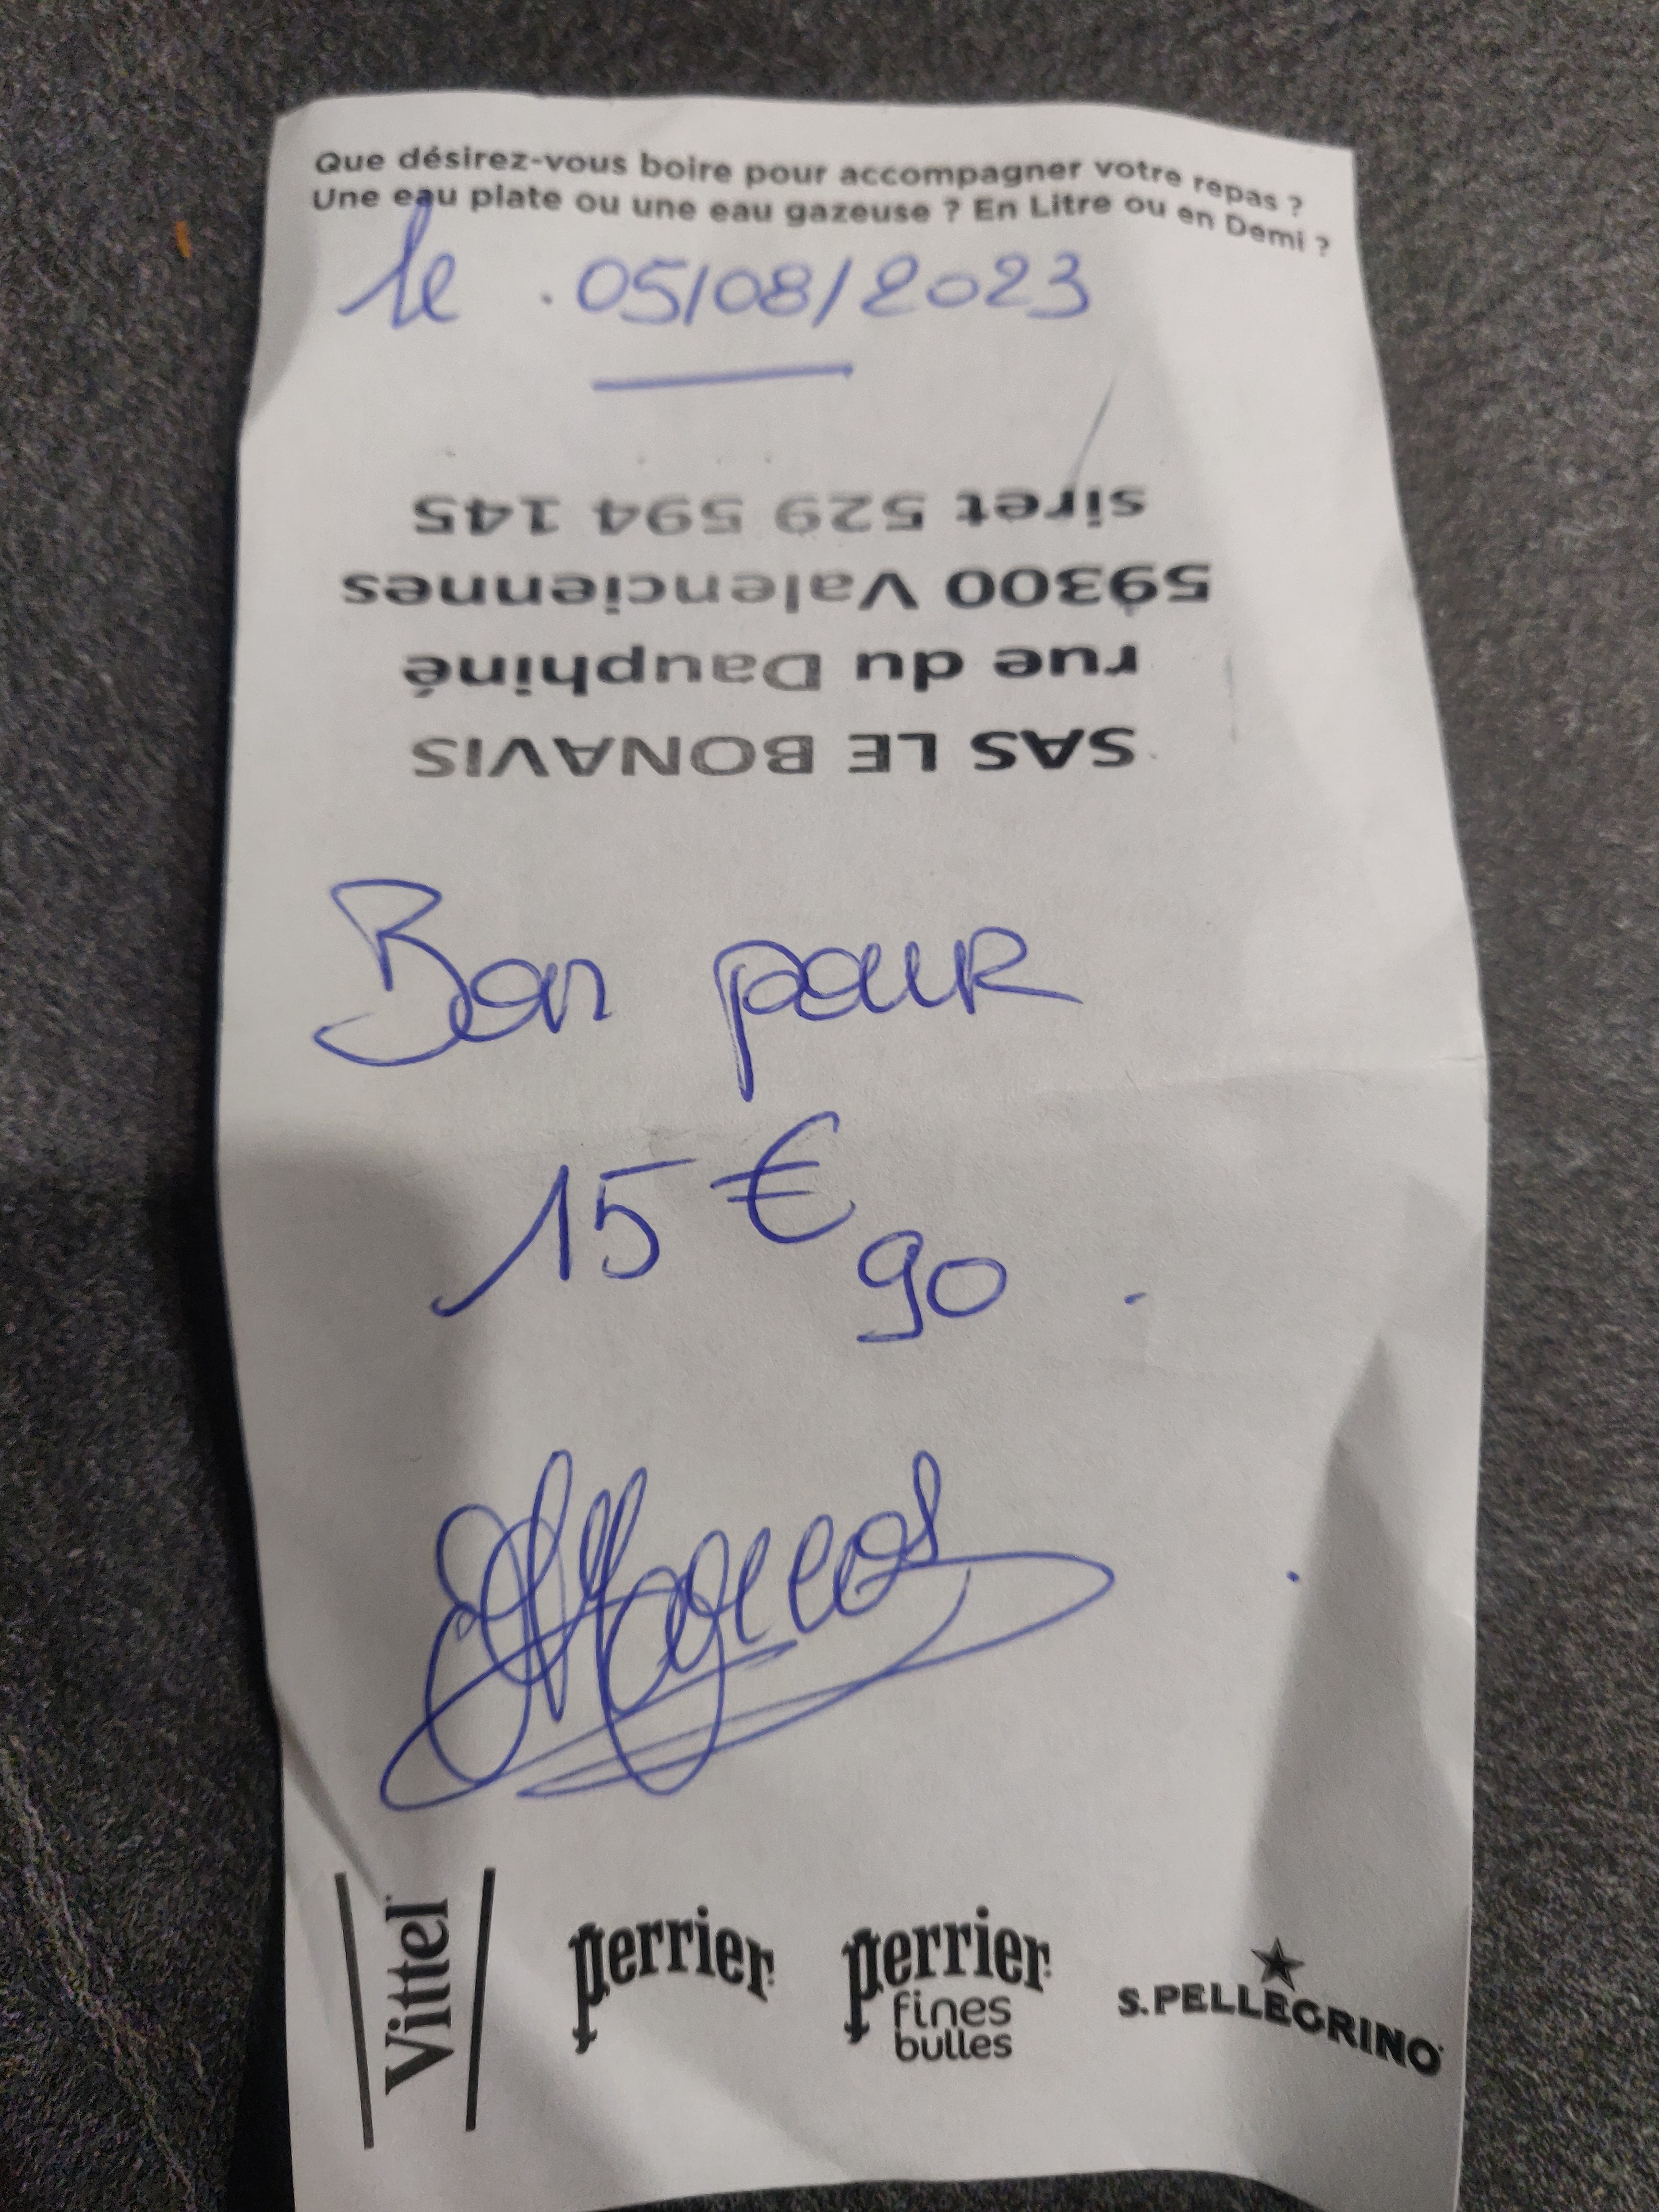 Que désirez-vous boire pour accompagner votre repas ?
Une eau plate ou une eau gazeuse ? En Litre ou en Demi ?
le . 05/08/2023
SAS LE BONAVIS
rue du Dauphiné
59300 Valenciennes
siret 529 594 145
Bon pour
15 € 90 .
Vittel
perrier
perrier
fines
bulles
S.PELLEGRINO